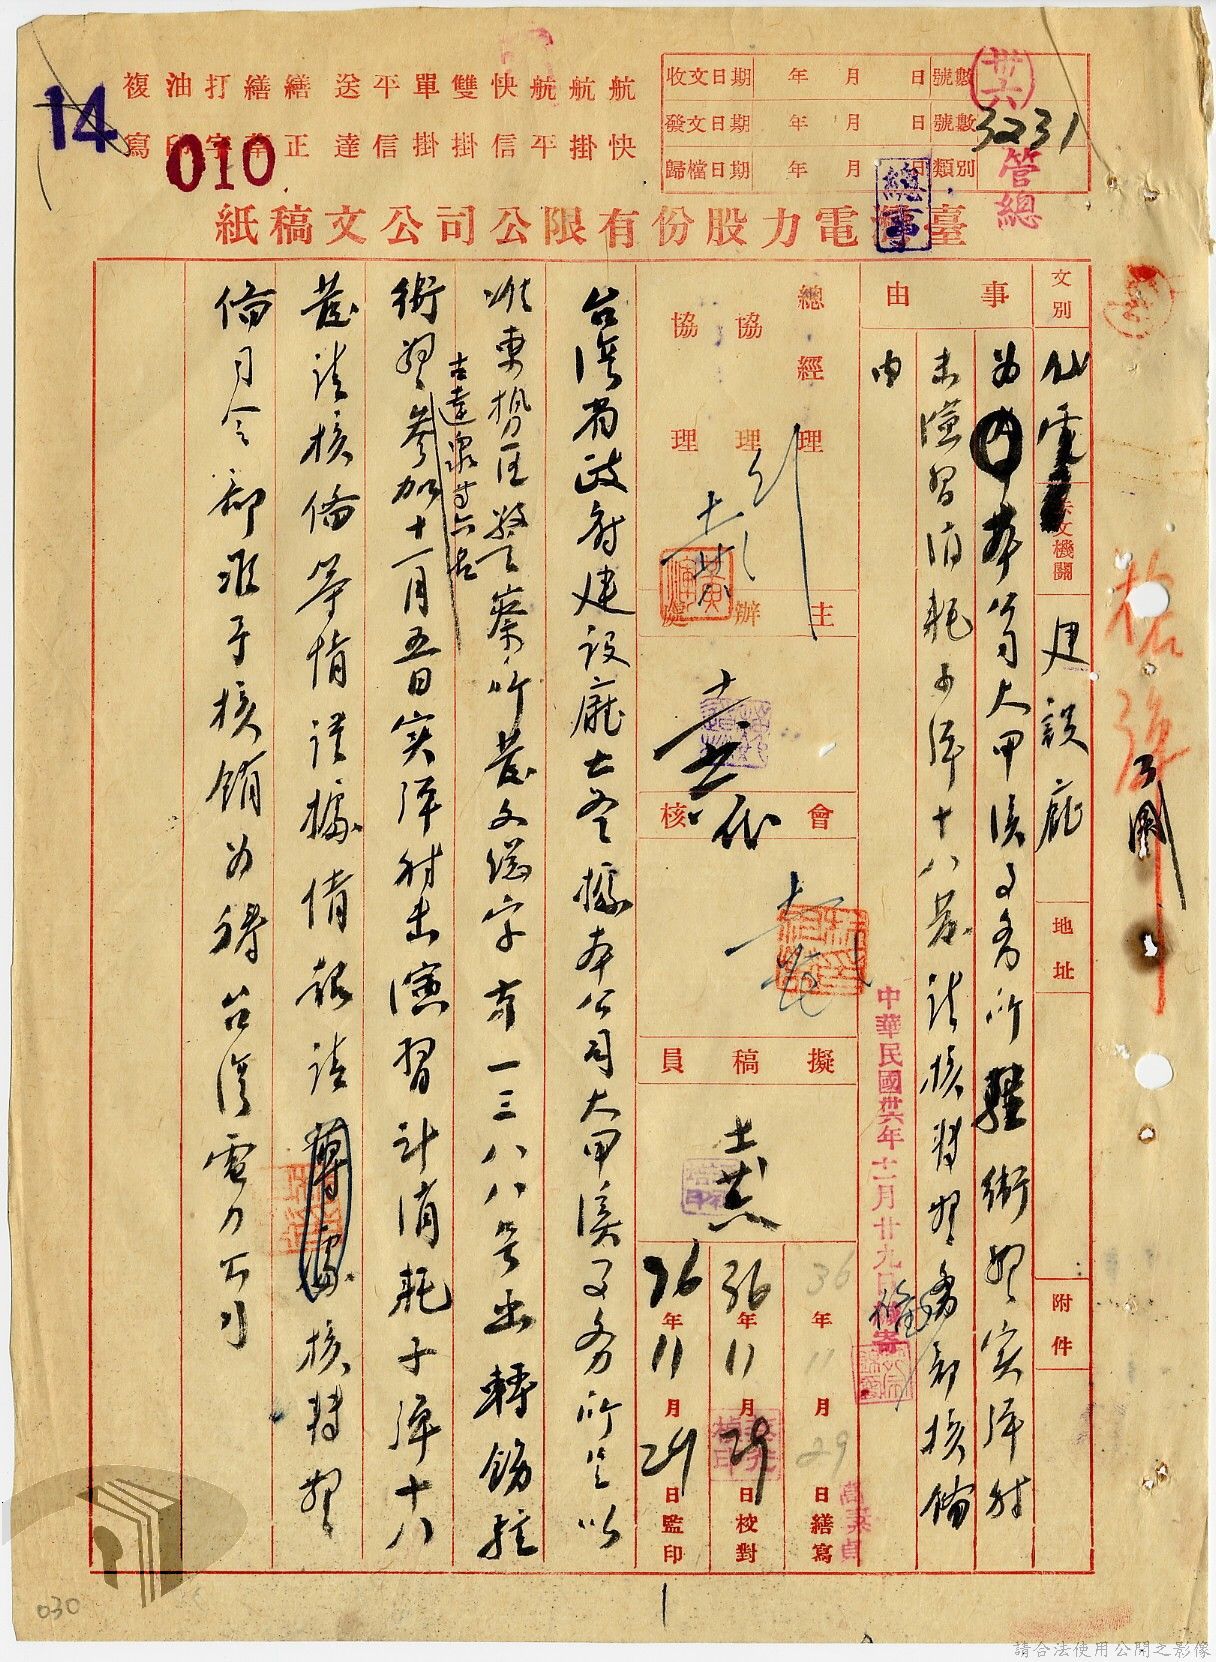 收文日期 年 月 日 號數
發文日期 年 月 日 號數
歸檔日期 年 月 日 類別
卅六
3231
管總
總事
航快
航掛
航平
快信
雙掛
單掛
平信
送達
繕正
繕
打字
油印
複寫
14
010
臺灣電力股份有限公司公文稿紙
文別
代電
去文機關
建設廳
地址
附件
事由
為本公司大甲溪工務所駐衛警實彈射
擊演習消耗子彈十八發請核轉警務部核備
由
總經理
協理
協理
主辦處
會核
擬稿員
中華民國卅六年十一月廿九日
36年11月29日繕寫
36年11月29日校對
36年11月29日監印
台灣省政府建設廳公鑒據本公司大甲溪工務所呈以
准東勢區警察所發文總字第一三八八號出轉飭駐
衛警
古達泉等六名
參加十一月五日實彈射擊演習計消耗子彈十八
發請核備等情謹據情報請核轉警
備司令部准予核銷為禱台灣電力公司
030
請合法使用公開之影像